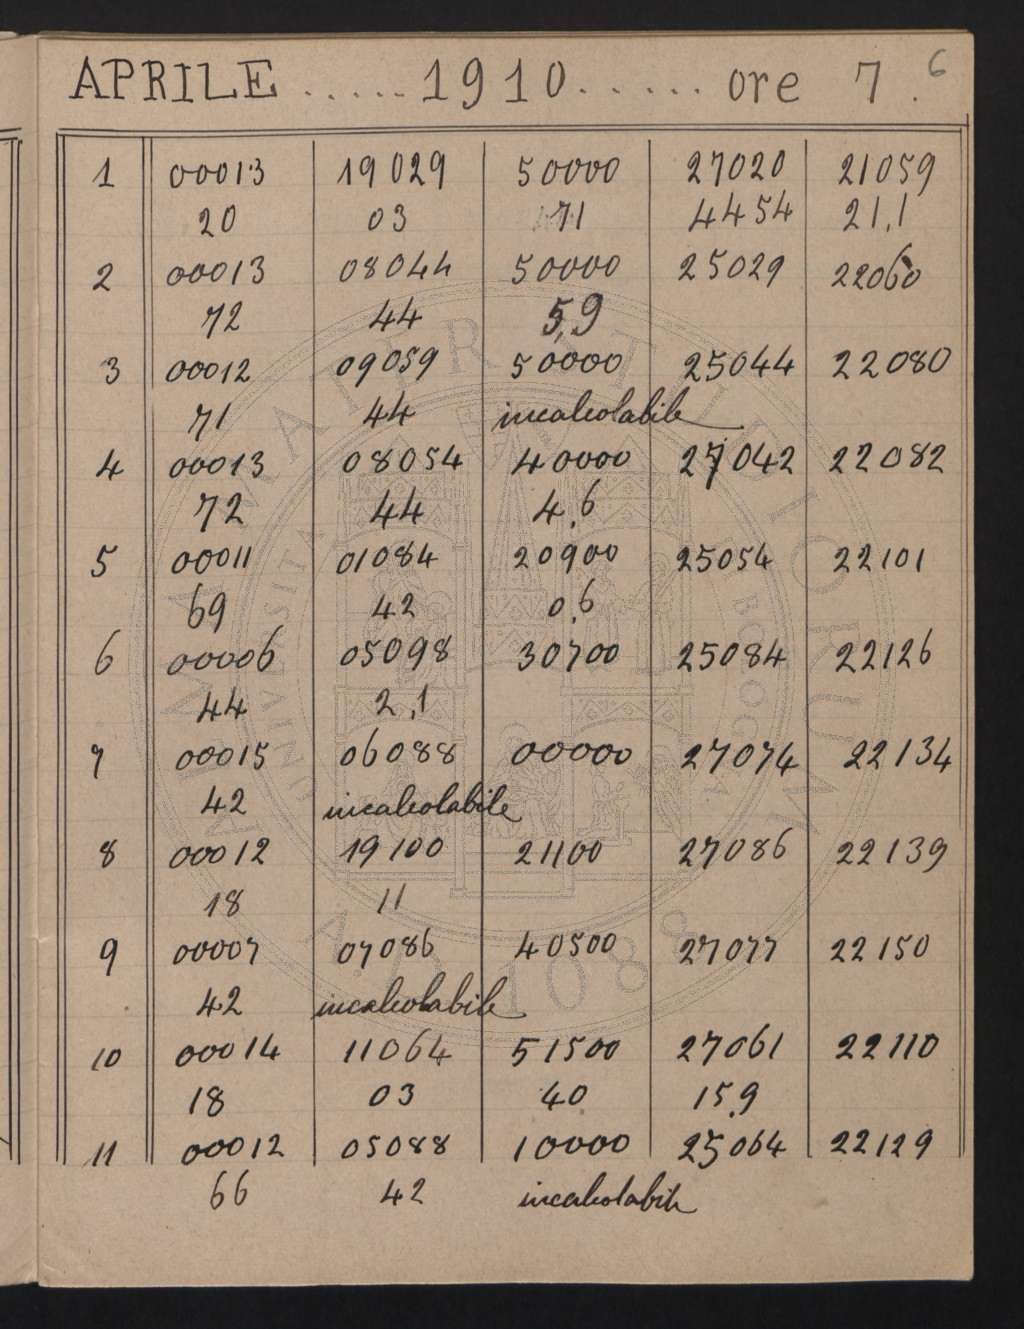 APRILE ..... 1910 ...... ore 7. 6
1 00013 19029 50000 27020 21059
20 03 71 4454 21,1
2 00013 08044 50000 25029 22060
72 44 5,9
3 00012 09059 50000 25044 22080
71 44 incalcolabile
4 00013 08054 40000 27042 22082
72 44 4,6
5 00011 01084 20900 25054 22101
69 42 0,6
6 00006 05098 30700 25084 22126
44 2,1
7 00015 06088 00000 27074 22134
42 incalcolabile
8 00012 19100 21100 27086 22139
18 11
9 00007 07086 40500 27077 22150
42 incalcolabile
10 00014 11064 51500 27061 22110
18 03 40 15,9
11 00012 05088 10000 25064 22129
66 42 incalcolabile
ALMA MATER STUDIORUM
UNIVERSITÀ DI BOLOGNA
A.D. 1088